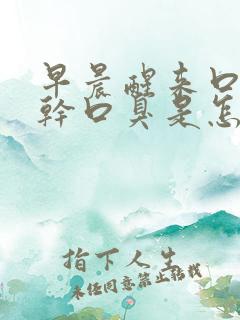 早晨醒来口
幹口臭是怎
指下人生
未经同意禁止转载